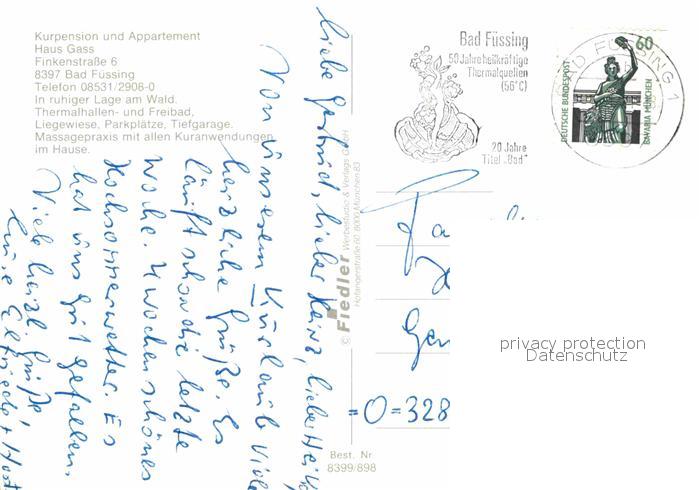 Kurpension und Appartement
Haus Gass
Finkenstraße 6
8397 Bad Füssing
Telefon 08531/2908-0
In ruhiger Lage am Wald.
Thermalhallen- und Freibad,
Liegewiese, Parkplätze, Tiefgarage.
Massagepraxis mit allen Kuranwendungen
im Hause.
Liebe Gertrud, lieber Heinz, liebe
Von unserem Kurlaub viele
herzliche Grüße. Es
läuft schon die letzte
Woche. 4 Wochen schönes
Hochsommerwetter. Es
hat uns gut gefallen.
Viele herzl. Grüße
Eure Elfriede + Horst
© Fiedler Werbestudio & Verlags GmbH
Hofangerstraße 60, 8000 München 83
Best. Nr
8399/898
Bad Füssing
50 Jahre heilkräftige
Thermalquellen
(56°C)
20 Jahre
Titel „Bad"
BAD FÜSSING 1
60
DEUTSCHE BUNDESPOST
BAVARIA MÜNCHEN
Ger
=O=328
privacy protection
Datenschutz